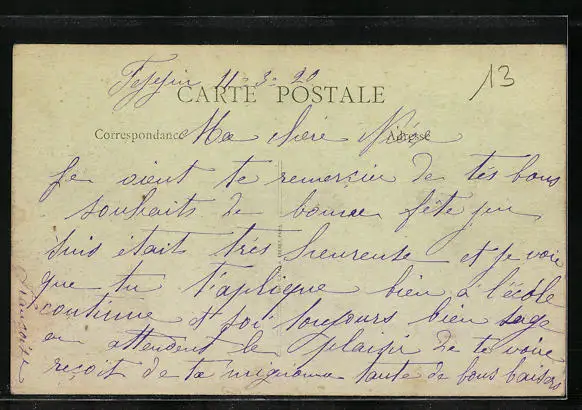 11-3-20
13
CARTE POSTALE
Correspondance
Adresse
Ma chère Nièce
Je vient te remercier de tes bons
souhaits de bonne fête j'en
suis était très heureuse et je voie
que tu t'aplique bien à l'école
continue et soi toujours bien sage
en attendent le plaisir de te voire
reçoit de ta mignonne tante de bons baisers
Françoise